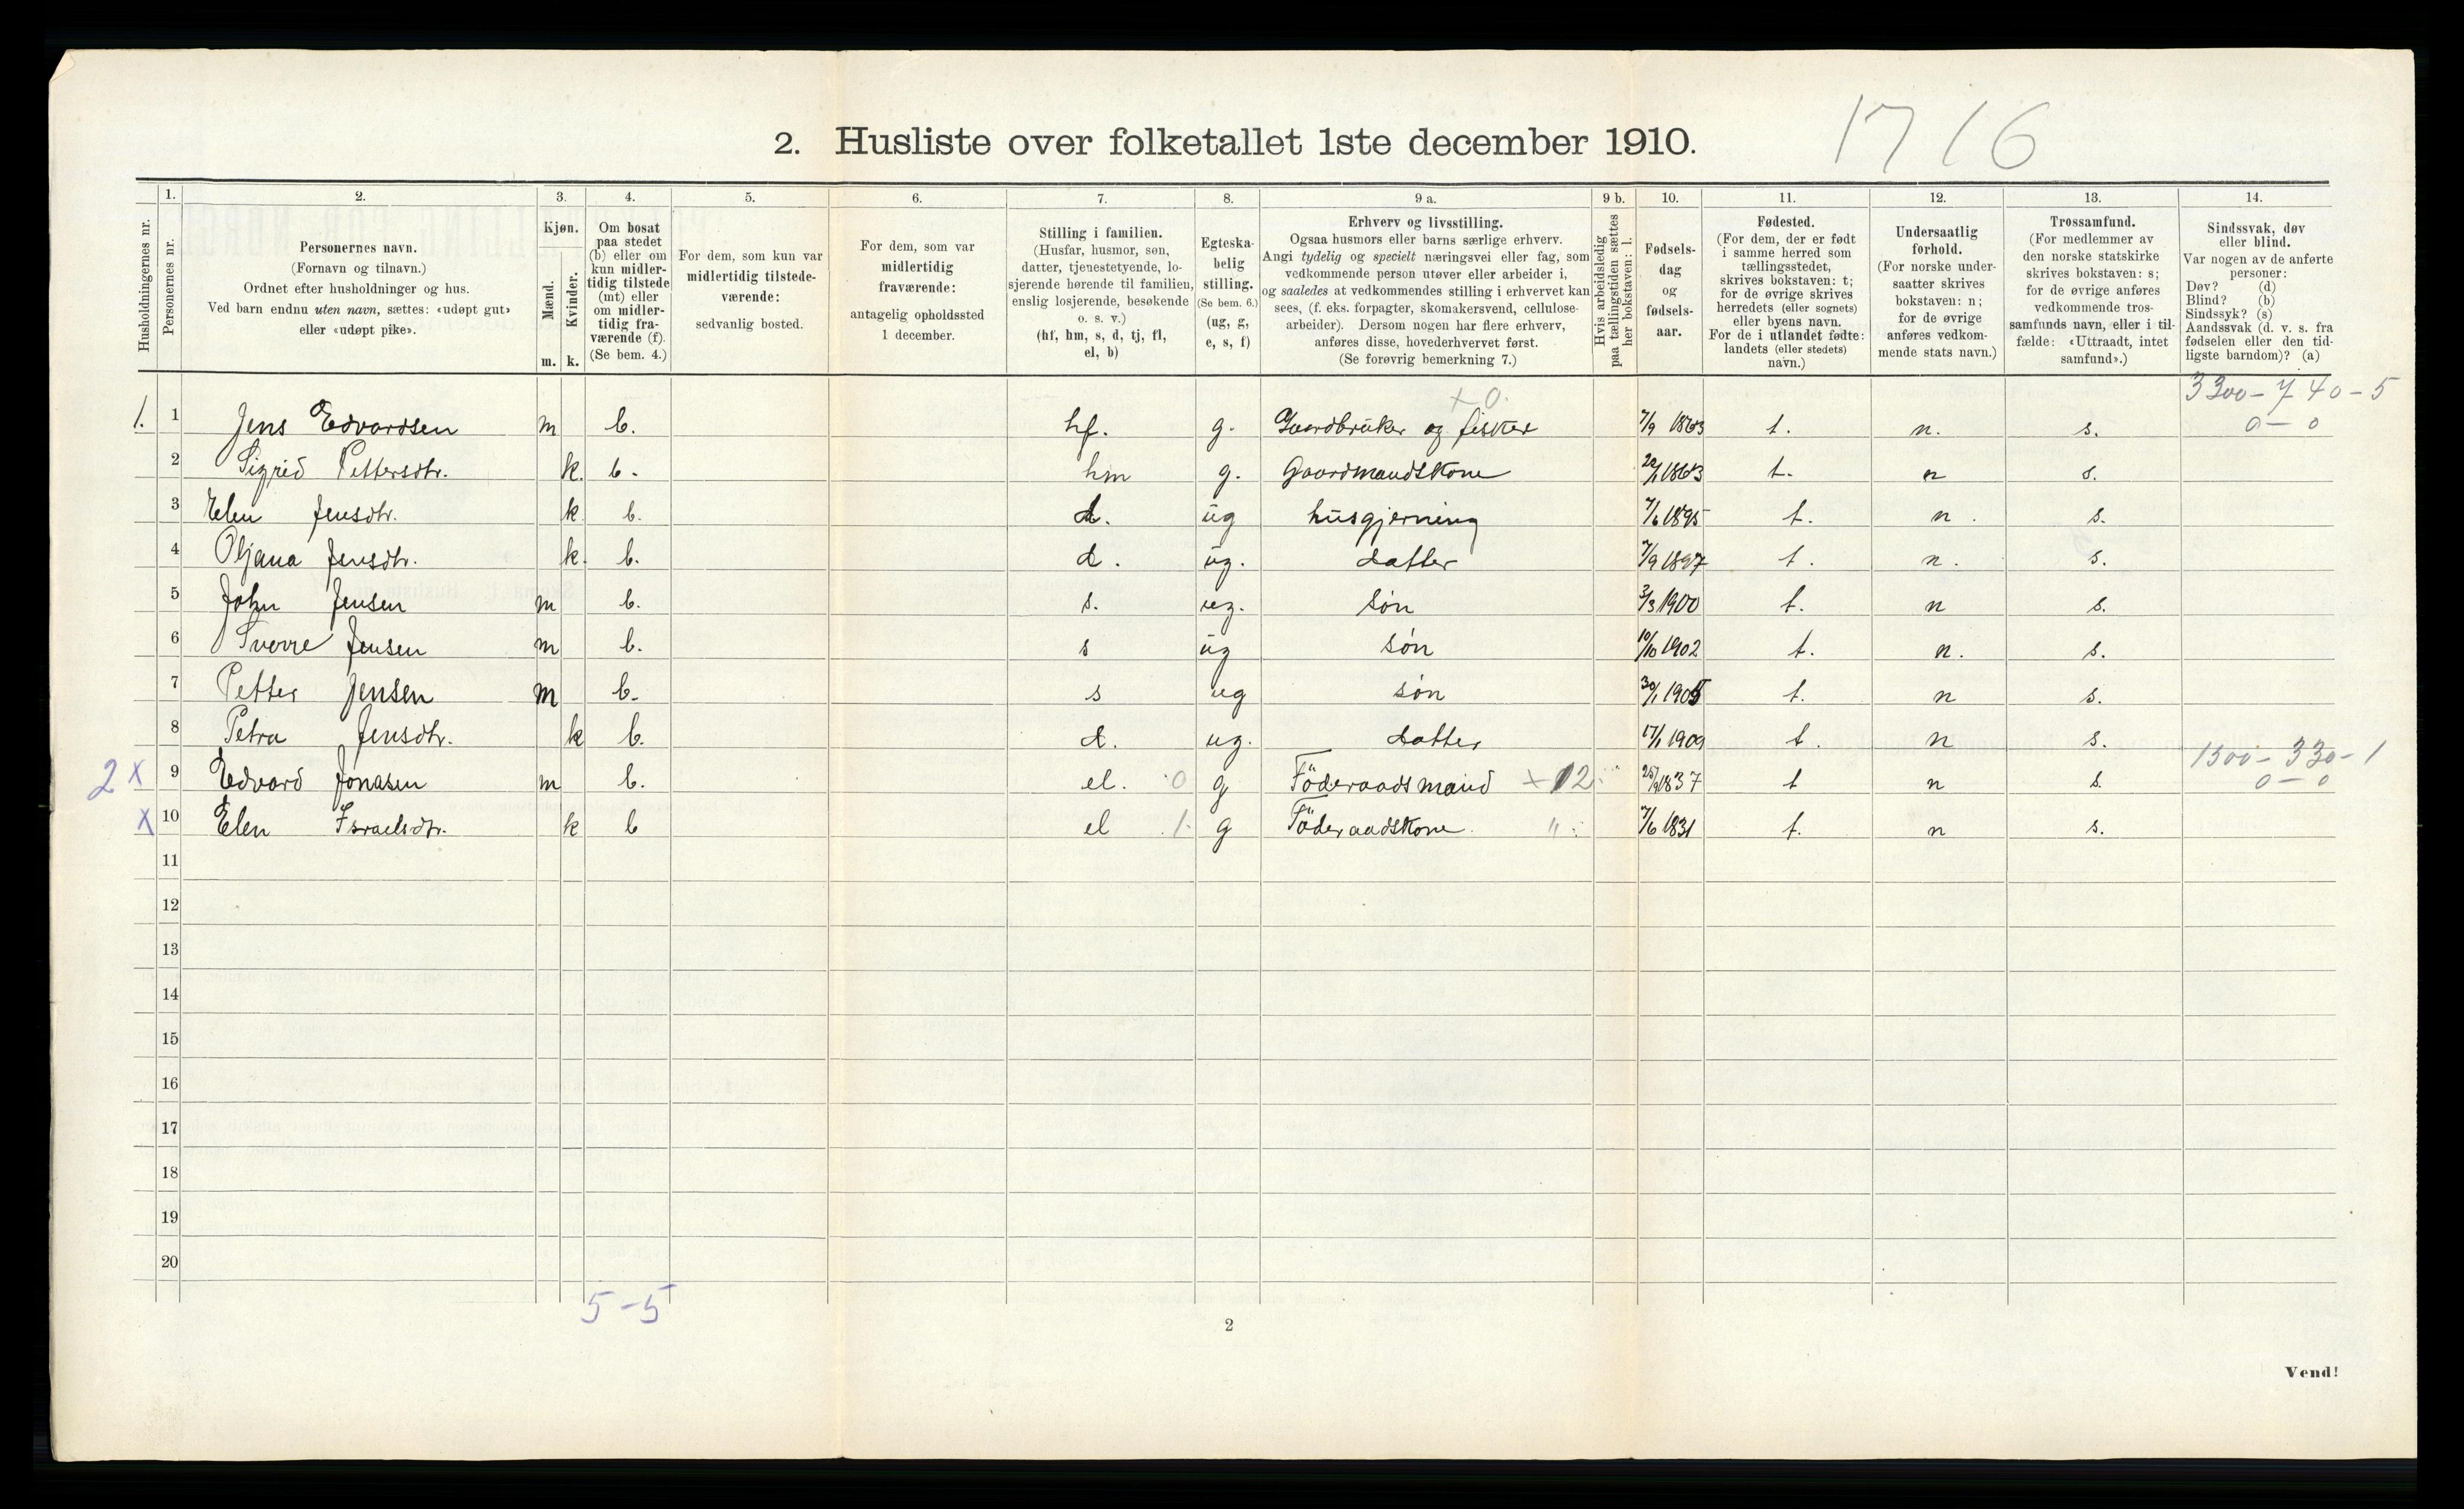 2. Husliste over folketallet 1ste december 1910. 1716
Husholdningernes nr.
1. Personernes nr.
2. Personernes navn. (Fornavn og tilnavn.) Ordnet efter husholdninger og hus. Ved barn endnu uten navn, sættes: «udøpt gut» eller «udøpt pike».
3. Kjøn. Mænd. m. Kvinder. k.
4. Om bosat paa stedet (b) eller om kun midlertidig tilstede (mt) eller om midlertidig fraværende (f). (Se bem. 4.)
5. For dem, som kun var midlertidig tilstedeværende: sedvanlig bosted.
6. For dem, som var midlertidig fraværende: antagelig opholdssted 1 december.
7. Stilling i familien. (Husfar, husmor, søn, datter, tjenestetyende, losjerende hørende til familien, enslig losjerende, besøkende o. s. v.) (hf, hm, s, d, tj, fl, el, b)
8. Egteskabelig stilling. (Se bem. 6.) (ug, g, e, s, f)
9 a. Erhverv og livsstilling. Ogsaa husmors eller barns særlige erhverv. Angi tydelig og specielt næringsvei eller fag, som vedkommende person utøver eller arbeider i, og saaledes at vedkommendes stilling i erhvervet kan sees, (f. eks. forpagter, skomakersvend, cellulosearbeider). Dersom nogen har flere erhverv, anføres disse, hovederhvervet først. (Se forøvrig bemerkning 7.)
9 b. Hvis arbeidsledig paa tællingstiden sættes her bokstaven: l.
10. Fødselsdag og fødselsaar.
11. Fødested. (For dem, der er født i samme herred som tællingsstedet, skrives bokstaven: t; for de øvrige skrives herredets (eller sognets) eller byens navn. For de i utlandet fødte: landets (eller stedets) navn.)
12. Undersaatlig forhold. (For norske undersaatter skrives bokstaven: n; for de øvrige anføres vedkommende stats navn.)
13. Trossamfund. (For medlemmer av den norske statskirke skrives bokstaven: s; for de øvrige anføres vedkommende trossamfunds navn, eller i tilfælde: «Uttraadt, intet samfund».)
14. Sindssvak, døv eller blind. Var nogen av de anførte personer: Døv? (d) Blind? (b) Sindssyk? (s) Aandssvak (d. v. s. fra fødselen eller den tidligste barndom)? (a)
+0. 3300-740-5
1. 1 Jens Edvardsen m b. hf. g. Gaardbruker og fisker 7/9 1863 t. n. s. 0-0
2 Sigrid Pettersdtr. k. b. hm g. Gaardmandskone 1863 t. n s.
3 Elen Jensdtr. k b. d. ug husgjerning 7/6 1895 t. n. s.
4 Oljana Jensdtr. k. b. d. ug. datter 7/9 1897 t. n. s.
5 John Jensen m b. s. ug. søn 3/3 1900 t. n s.
6 Sverre Jensen m b. s ug søn 10/10 1902 t. n. s.
7 Petter Jensen m b. s ug søn 30/1 1905 t. n s.
8 Petra Jensdtr. k b. d. ug. datter 17/1 1909 t. n s.
1300-330-1
2 x 9 Edvard Jonasen m b. el. 0 g Föderaadsmand +12 1837 t n s. 0-0
x 10 Elen Israelsdtr. k b el 1. g Föderaadskone " 7/6 1831 t. n s.
11
12
13
14
15
16
17
18
19
20
5-5
2
Vend!